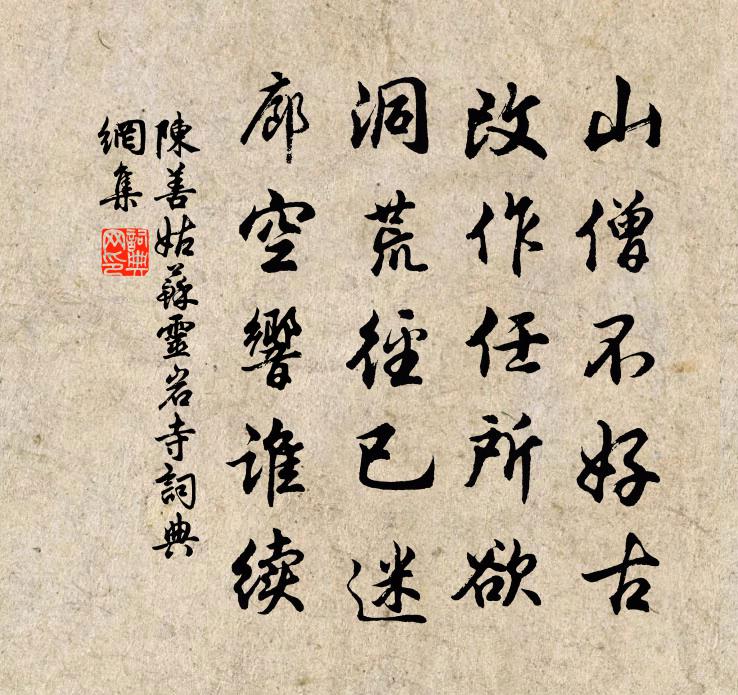 山僧不好古
改作任所欲
洞荒径已迷
廊空響谁续
陳善姑蘇靈岩寺詞典
網集
詞典网印